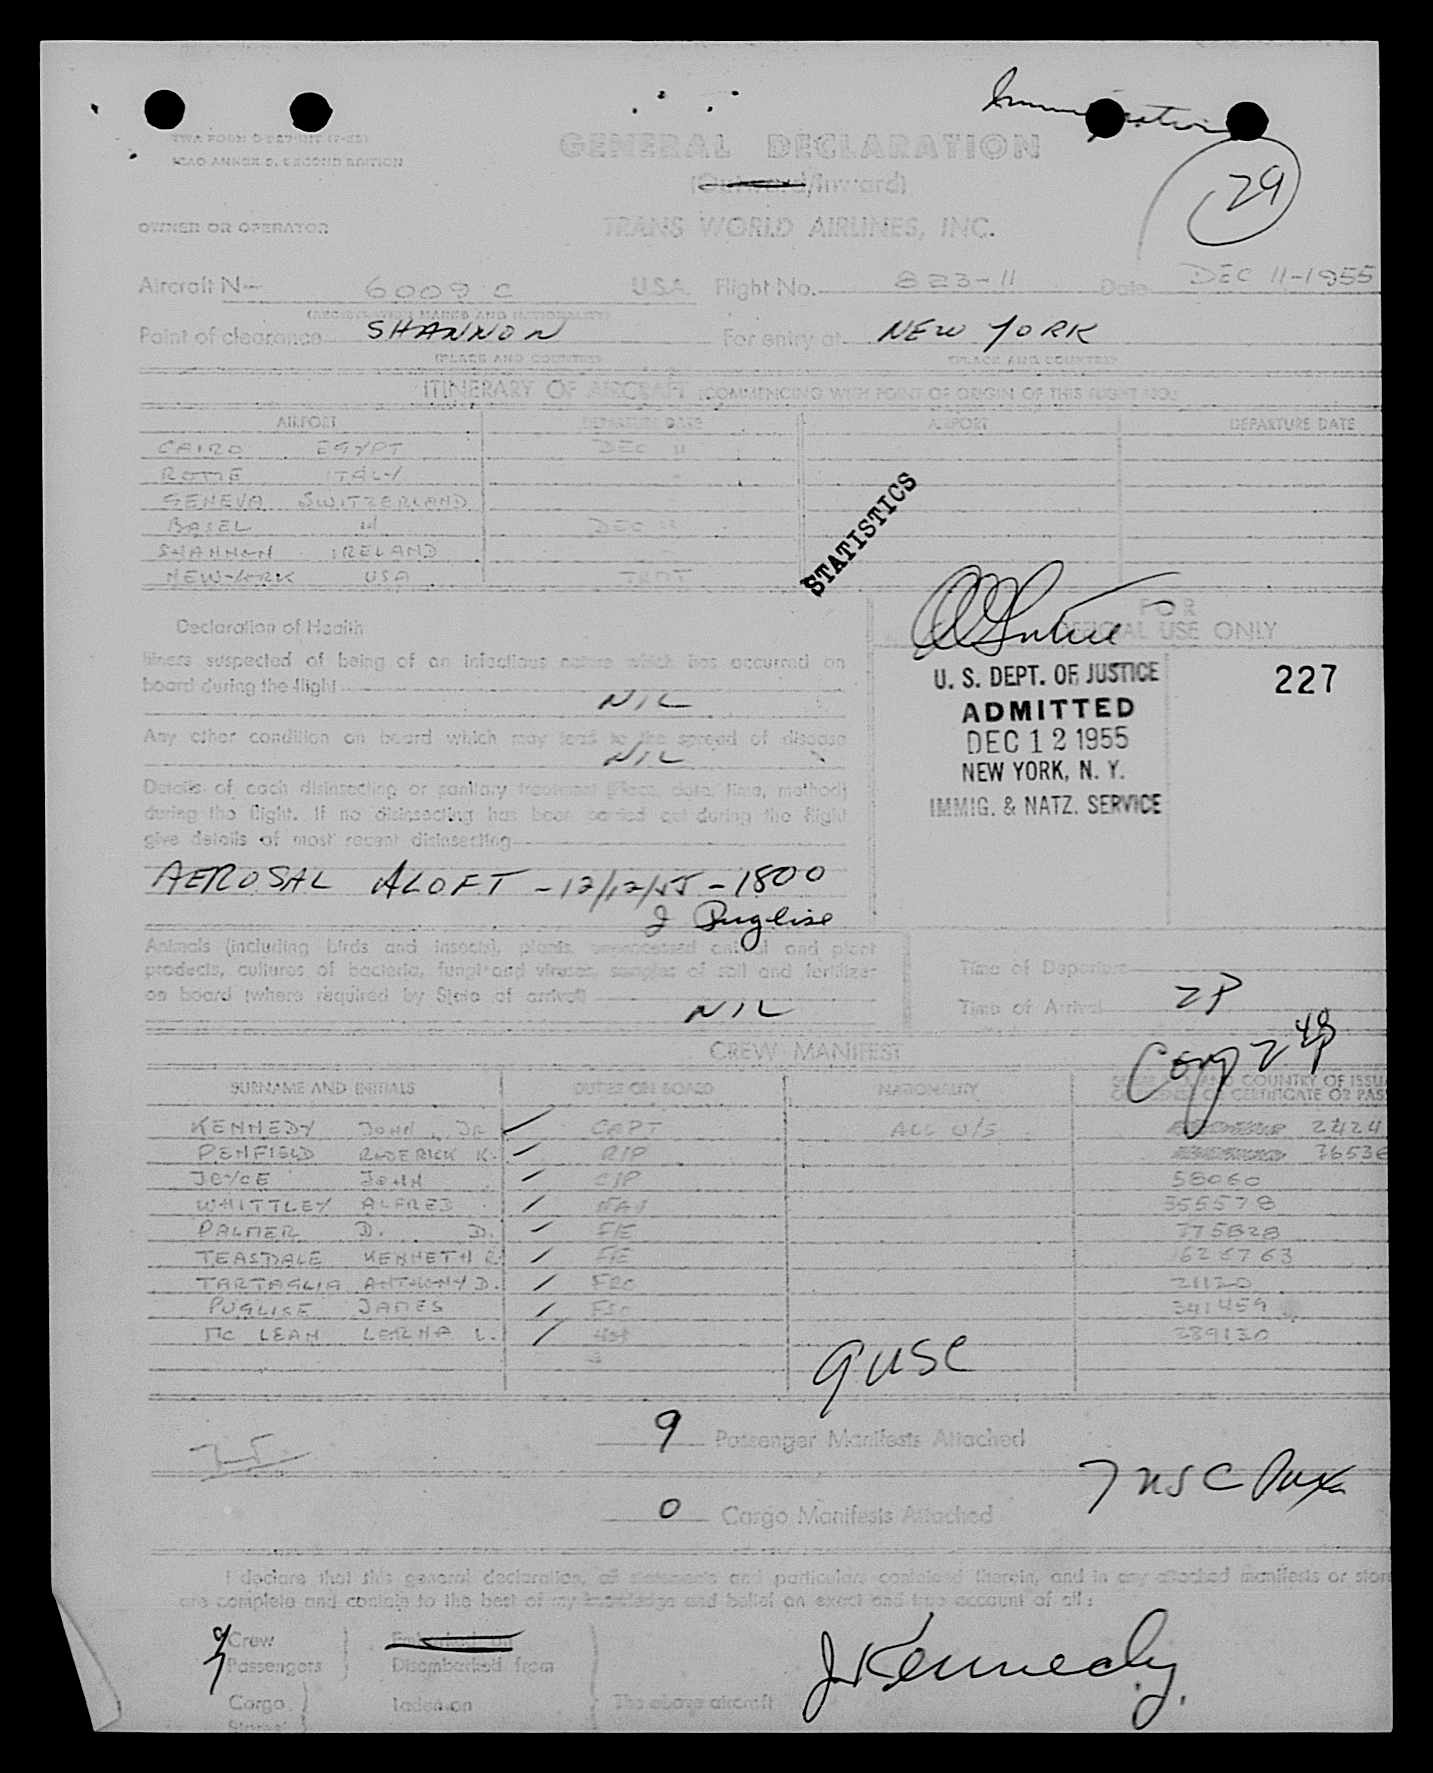 Immigration
29
TWA FORM
ICAO ANNEX 9, SECOND EDITION
GENERAL DECLARATION
(Outward/Inward)
OWNER OR OPERATOR
TRANS WORLD AIRLINES, INC.
Aircraft N- 6009 C U.S.A. Flight No. 823-11 Date DEC 11-1955
(REGISTRATION MARKS AND NATIONALITY)
Point of clearance SHANNON For entry at NEW YORK
(PLACE AND COUNTRY) (PLACE AND COUNTRY)
ITINERARY OF AIRCRAFT (COMMENCING WITH POINT OF ORIGIN OF THIS FLIGHT NO.)
AIRPORT DEPARTURE DATE AIRPORT DEPARTURE DATE
CAIRO EGYPT DEC 11
ROME ITALY
GENEVA SWITZERLAND
BASEL " DEC
SHANNON IRELAND
NEW-YORK USA TRMT
STATISTICS
FOR
OFFICIAL USE ONLY
U. S. DEPT. OF JUSTICE
ADMITTED
DEC 12 1955
NEW YORK, N. Y.
IMMIG. & NATZ. SERVICE
227
Declaration of Health
Illness suspected of being of an infectious nature which has occurred on
board during the flight NIL
Any other condition on board which may lead to the spread of disease
NIL
Details of each disinsecting or sanitary treatment (place, date, time, method)
during the flight. If no disinsecting has been carried out during the flight
give details of most recent disinsecting
AEROSAL ALOFT - 12/12/55 - 1800
J Puglise
Animals (including birds and insects), plants, unprocessed animal and plant
products, cultures of bacteria, fungi and viruses, samples of soil and fertilizer
on board (where required by State of arrival)
NIL
Time of Departure
Time of Arrival 2P
Comp 2 48P
CREW MANIFEST
SURNAME AND INITIALS DUTIES ON BOARD NATIONALITY AND COUNTRY OF ISSU
LICENSE OR CERTIFICATE OR PAS
KENNEDY JOHN, JR CAPT ALL U/S 2424
PENFIELD RODERICK K. R/P 36536
JOYCE JOHN C/P 58060
WHITTLEY ALFRED NAV 355578
PALMER D. D. F/E 375828
TEASDALE KENNETH R. F/E 1625763
TARTAGLIA ANTHONY D. FRO 21120
PUGLISE JAMES FSO 341459
MC LEAN LERNA L. Hst 289130
9 USC
9 Passenger Manifests Attached
7 USC Paxe
0 Cargo Manifests Attached
I declare that this general declaration, all statements and particulars contained therein, and in any attached manifests or stor
are complete and contain to the best of my knowledge and belief an exact and true account of all:
9 Crew Embarked on
7 Passengers Disembarked from
Cargo Laden on The above aircraft
Stores
J Kennedy